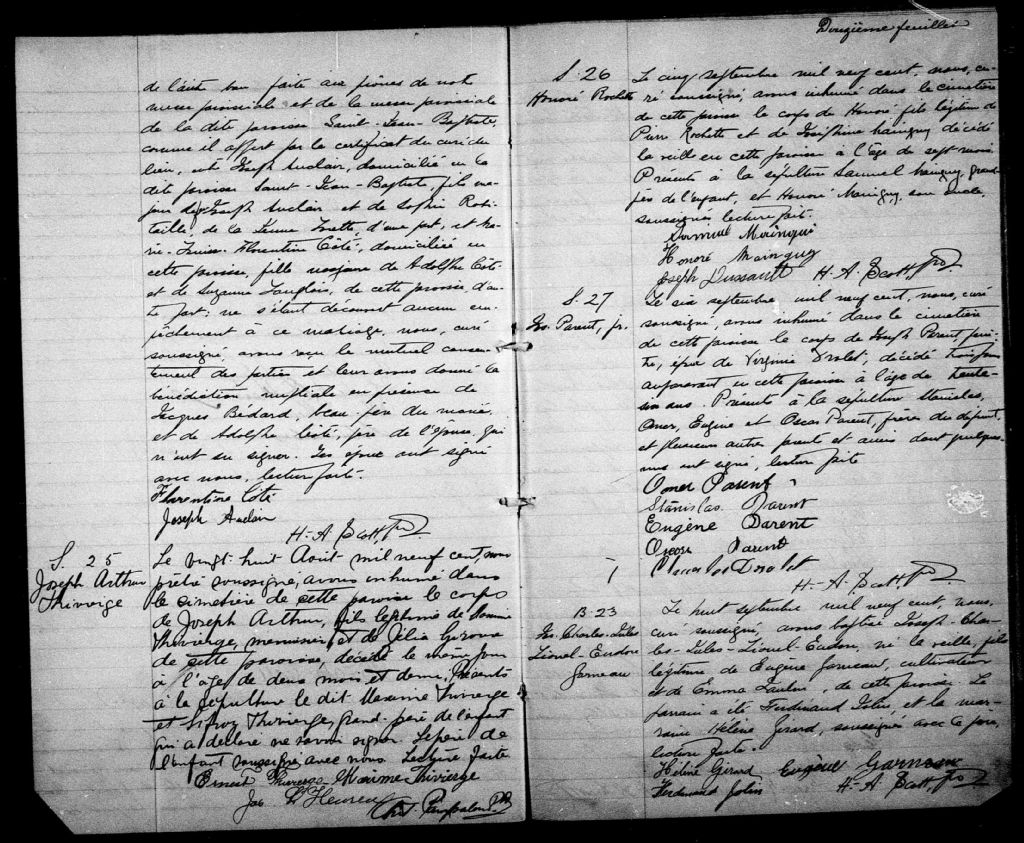 de l'autre ban faite aux prônes de notre
messe paroissiale et de la messe paroissiale
de la dite paroisse Saint-Jean-Baptiste,
comme il appert par le certificat du curé du
lieu, entre Joseph Auclair, domicilié en la
dite paroisse Saint-Jean-Baptiste, fils ma-
jeur de Joseph Auclair et de Sophie Robi-
taille, de la Jeune Lorette, d'une part, et Ma-
rie-Louise-Florentine Côté, domiciliée en
cette paroisse, fille majeure de Adolphe Côté
et de Suzanne Langlois, de cette paroisse, d'au-
tre part; ne s'étant découvert aucun em-
pêchement à ce mariage, nous, curé
soussigné, avons reçu le mutuel consen-
tement des parties et leur avons donné la
bénédiction nuptiale en présence de
Jacques Bédard, beau-père du marié,
et de Adolphe Côté, père de l'épouse, qui
n'ont su signer. Les époux ont signé
avec nous, lecture faite.
Florentine Coté
Joseph Auclair
H.-A. Scott, ptre
S. 25
Joseph Arthur
Thivierge
Le vingt-huit Août mil neuf cent, nous
prêtre soussigné, avons inhumé dans
le cimetière de cette paroisse le corps
de Joseph Arthur, fils légitime de Maxime
Thivierge, menuisier, et de Délia Giroux
de cette paroisse, décédé le même jour
à l'âge de deux mois et demi. Présents
à la sépulture le dit Maxime Thivierge
et Thivierge, grand-père de l'enfant
qui a déclaré ne savoir signer. Le père de
l'enfant soussigné avec nous. Lecture faite
Ernest Thivierge Maxime Thivierge
Jos L'Heureux
Ptre
Douzième feuillet
S. 26
Honoré Rochette
Le cinq septembre mil neuf cent, nous, cu-
ré soussigné, avons inhumé dans le cimetière
de cette paroisse le corps de Honoré, fils légitime de
Pierre Rochette et de Joséphine Mainguy, décédé
la veille en cette paroisse à l'âge de sept mois.
Présents à la sépulture Samuel Mainguy, grand-
père de l'enfant, et Honoré Mainguy, son oncle,
soussignés lecture faite.
Samuel Maingui
Honoré Mainguy
Joseph Dussault H.-A. Scott, ptre
S. 27
Jos. Parent, jr.
Le six septembre mil neuf cent, nous, curé
soussigné, avons inhumé dans le cimetière
de cette paroisse le corps de Joseph Parent,
époux de Virginie Drolet, décédé trois jours
auparavant en cette paroisse à l'âge de trente-
ans. Présents à la sépulture Stanislas,
Omer, Eugène et Oscar Parent, frères du défunt,
et plusieurs autres parents et amis dont quelques-
uns ont signé, lecture faite
Omer Parent
Stanislas Parent
Eugène Parent
Oscar Parent
Drolet
H.-A. Scott, ptre
B. 23
Jos. Charles-Jules
Lionel-Eudore
Garneau
Le huit septembre mil neuf cent, nous,
curé soussigné, avons baptisé Joseph-Char-
les-Jules-Lionel-Eudore, né la veille, fils
légitime de Eugène Garneau, cultivateur
et de Emma, de cette paroisse. Le
parrain a été Ferdinand Jolin, et la mar-
raine Hélène Girard, soussignés avec le père,
lecture faite.
Hélène Girard Eugène Garneau
Ferdinand Jolin H.-A. Scott, ptre